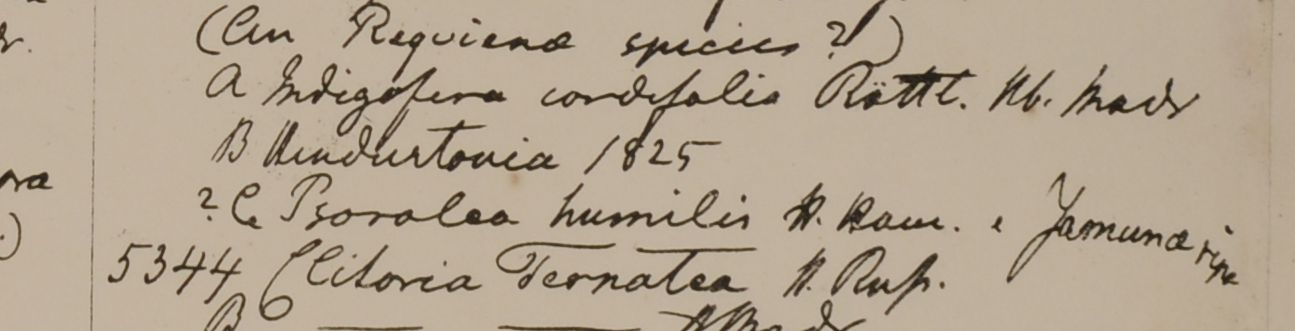 r.
(An Requienæ species?)
A Indigofera cordifolia Röttl. Hb. Madr
B Hindustonia 1825
? C. Psoralea humilis H. Ham. e Jamunæ ripa
5344 Clitoria Ternatea H. Rusp.
B H Madr